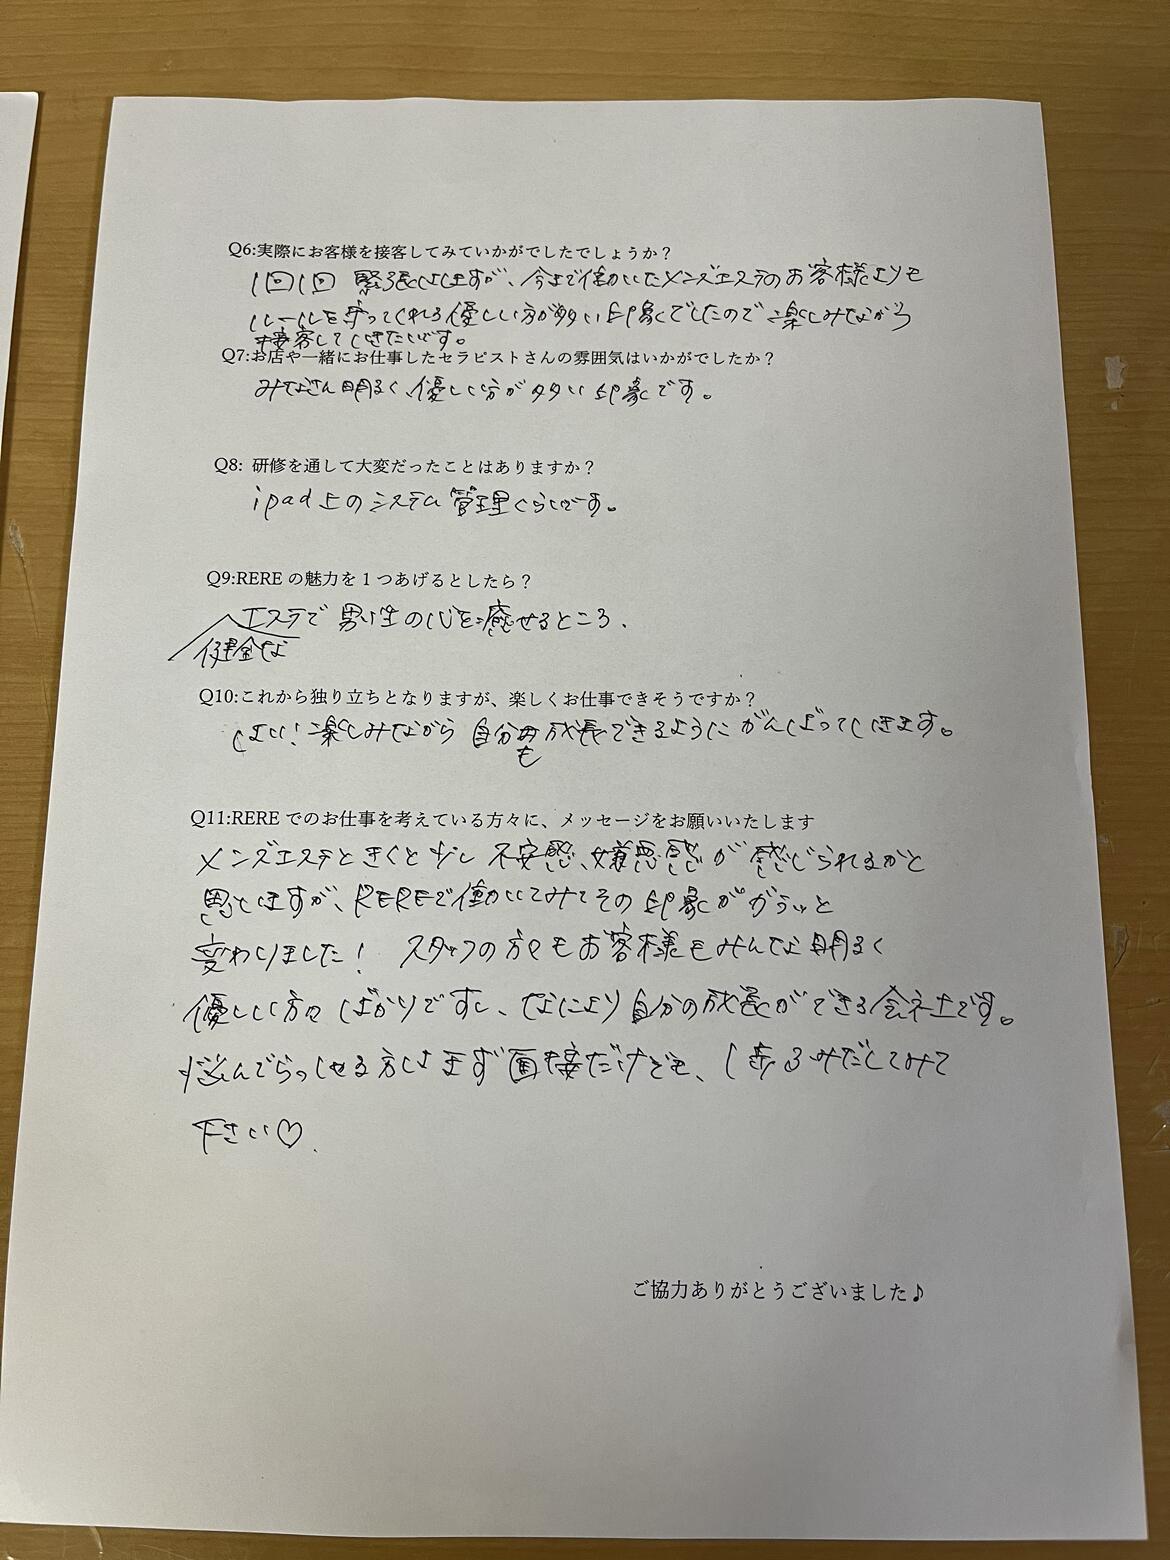 Q6:実際にお客様を接客してみていかがでしたでしょうか？
1回1回 緊張はしますが、今まで働いたメンズエステのお客様よりも
ルールを守ってくれる優しい方が多い印象でしたので楽しみながら
接客していきたいです。
Q7:お店や一緒にお仕事したセラピストさんの雰囲気はいかがでしたか？
みなさん明るく、優しい方が多い印象です。
Q8: 研修を通して大変だったことはありますか？
ipad上のシステム管理くらいです。
Q9:REREの魅力を1つあげるとしたら？
エステで男性の心を癒せるところ.
健全な
Q10:これから独り立ちとなりますが、楽しくお仕事できそうですか？
はい！楽しみながら自分も成長できるようにがんばっていきます。
Q11:REREでのお仕事を考えている方々に、メッセージをお願いいたします
メンズエステときくと少し不安感、嫌悪感が感じられるかと
思いますが、REREで働いてみてその印象ががらっと
変わりました！ スタッフの方々もお客様もみんな明るく
優しい方々ばかりですし、なにより自分の成長ができる会社です。
悩んでらっしゃる方はまず面接だけでも、1歩ふみだしてみて
下さい♡.
ご協力ありがとうございました♪